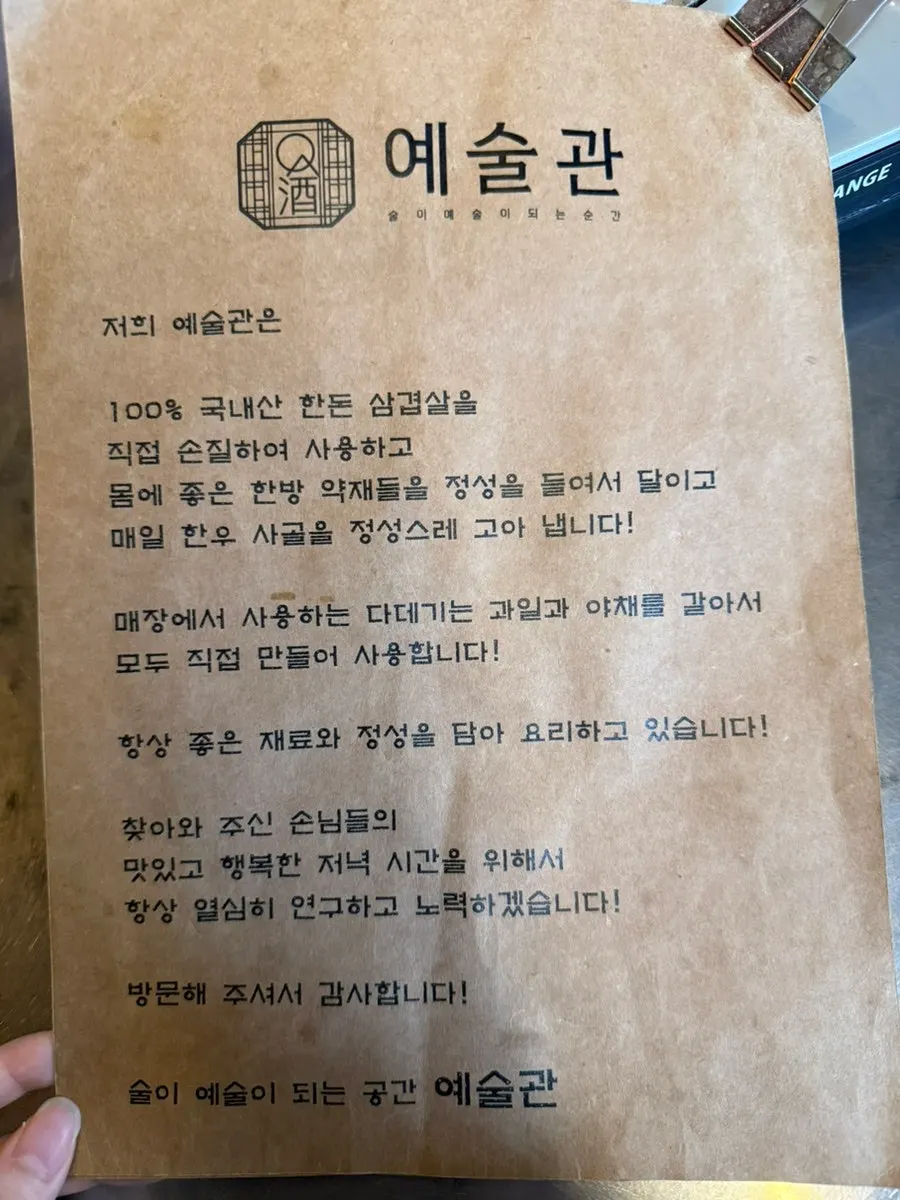 酒
예술관
술이예술이되는순간
ANGE
저희 예술관은
100% 국내산 한돈 삼겹살을
직접 손질하여 사용하고
몸에 좋은 한방 약재들을 정성을 들여서 달이고
매일 한우 사골을 정성스레 고아 냅니다!
매장에서 사용하는 다데기는 과일과 야채를 갈아서
모두 직접 만들어 사용합니다!
항상 좋은 재료와 정성을 담아 요리하고 있습니다!
찾아와 주신 손님들의
맛있고 행복한 저녁 시간을 위해서
항상 열심히 연구하고 노력하겠습니다!
방문해 주셔서 감사합니다!
술이 예술이 되는 공간 예술관